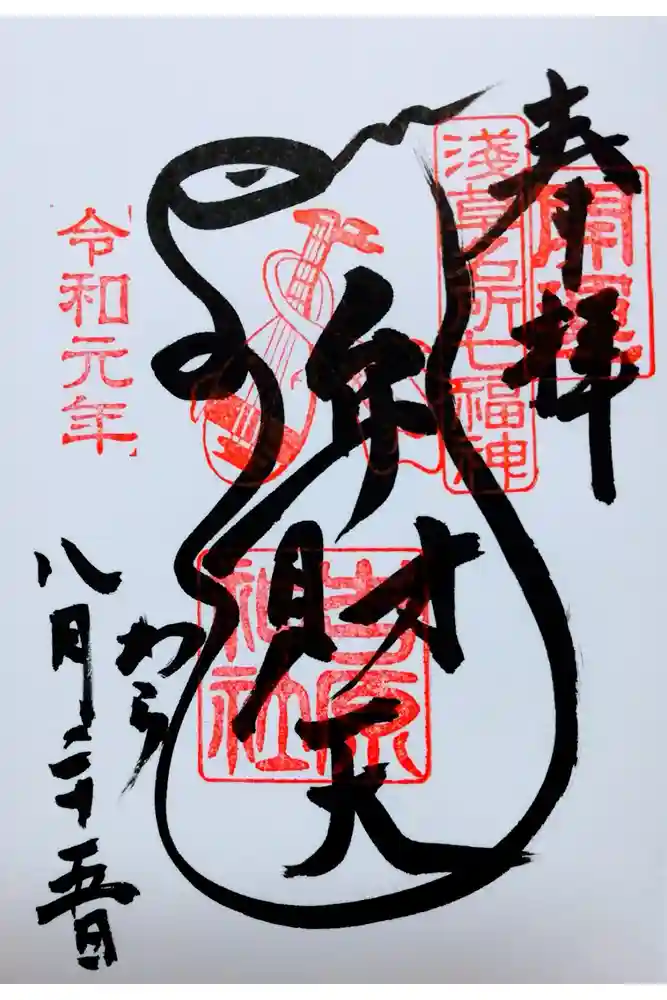 奉拝
開運
淺草名所七福神
弁財天
吉原
神社
わら
令和元年
八月二十五日